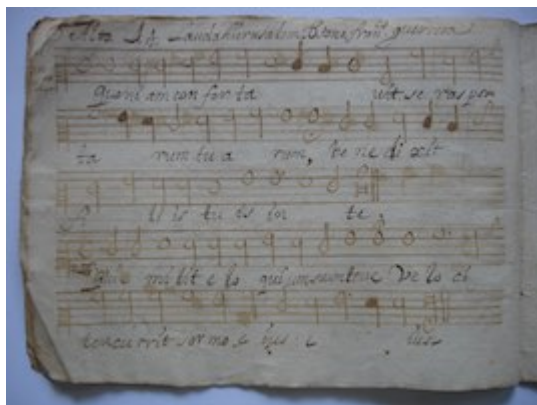 Alto A 4. Lauda Hierusalem. 8. tono, fran^co guerrero
Quoni am con for ta uit se ras por
ta rum tu a rum, be ne di xit
li is tu is in te,
Qui e mi tit e lo qui um suum trae Ve lo ci
ter cu rrit ser mo e ius : e ius